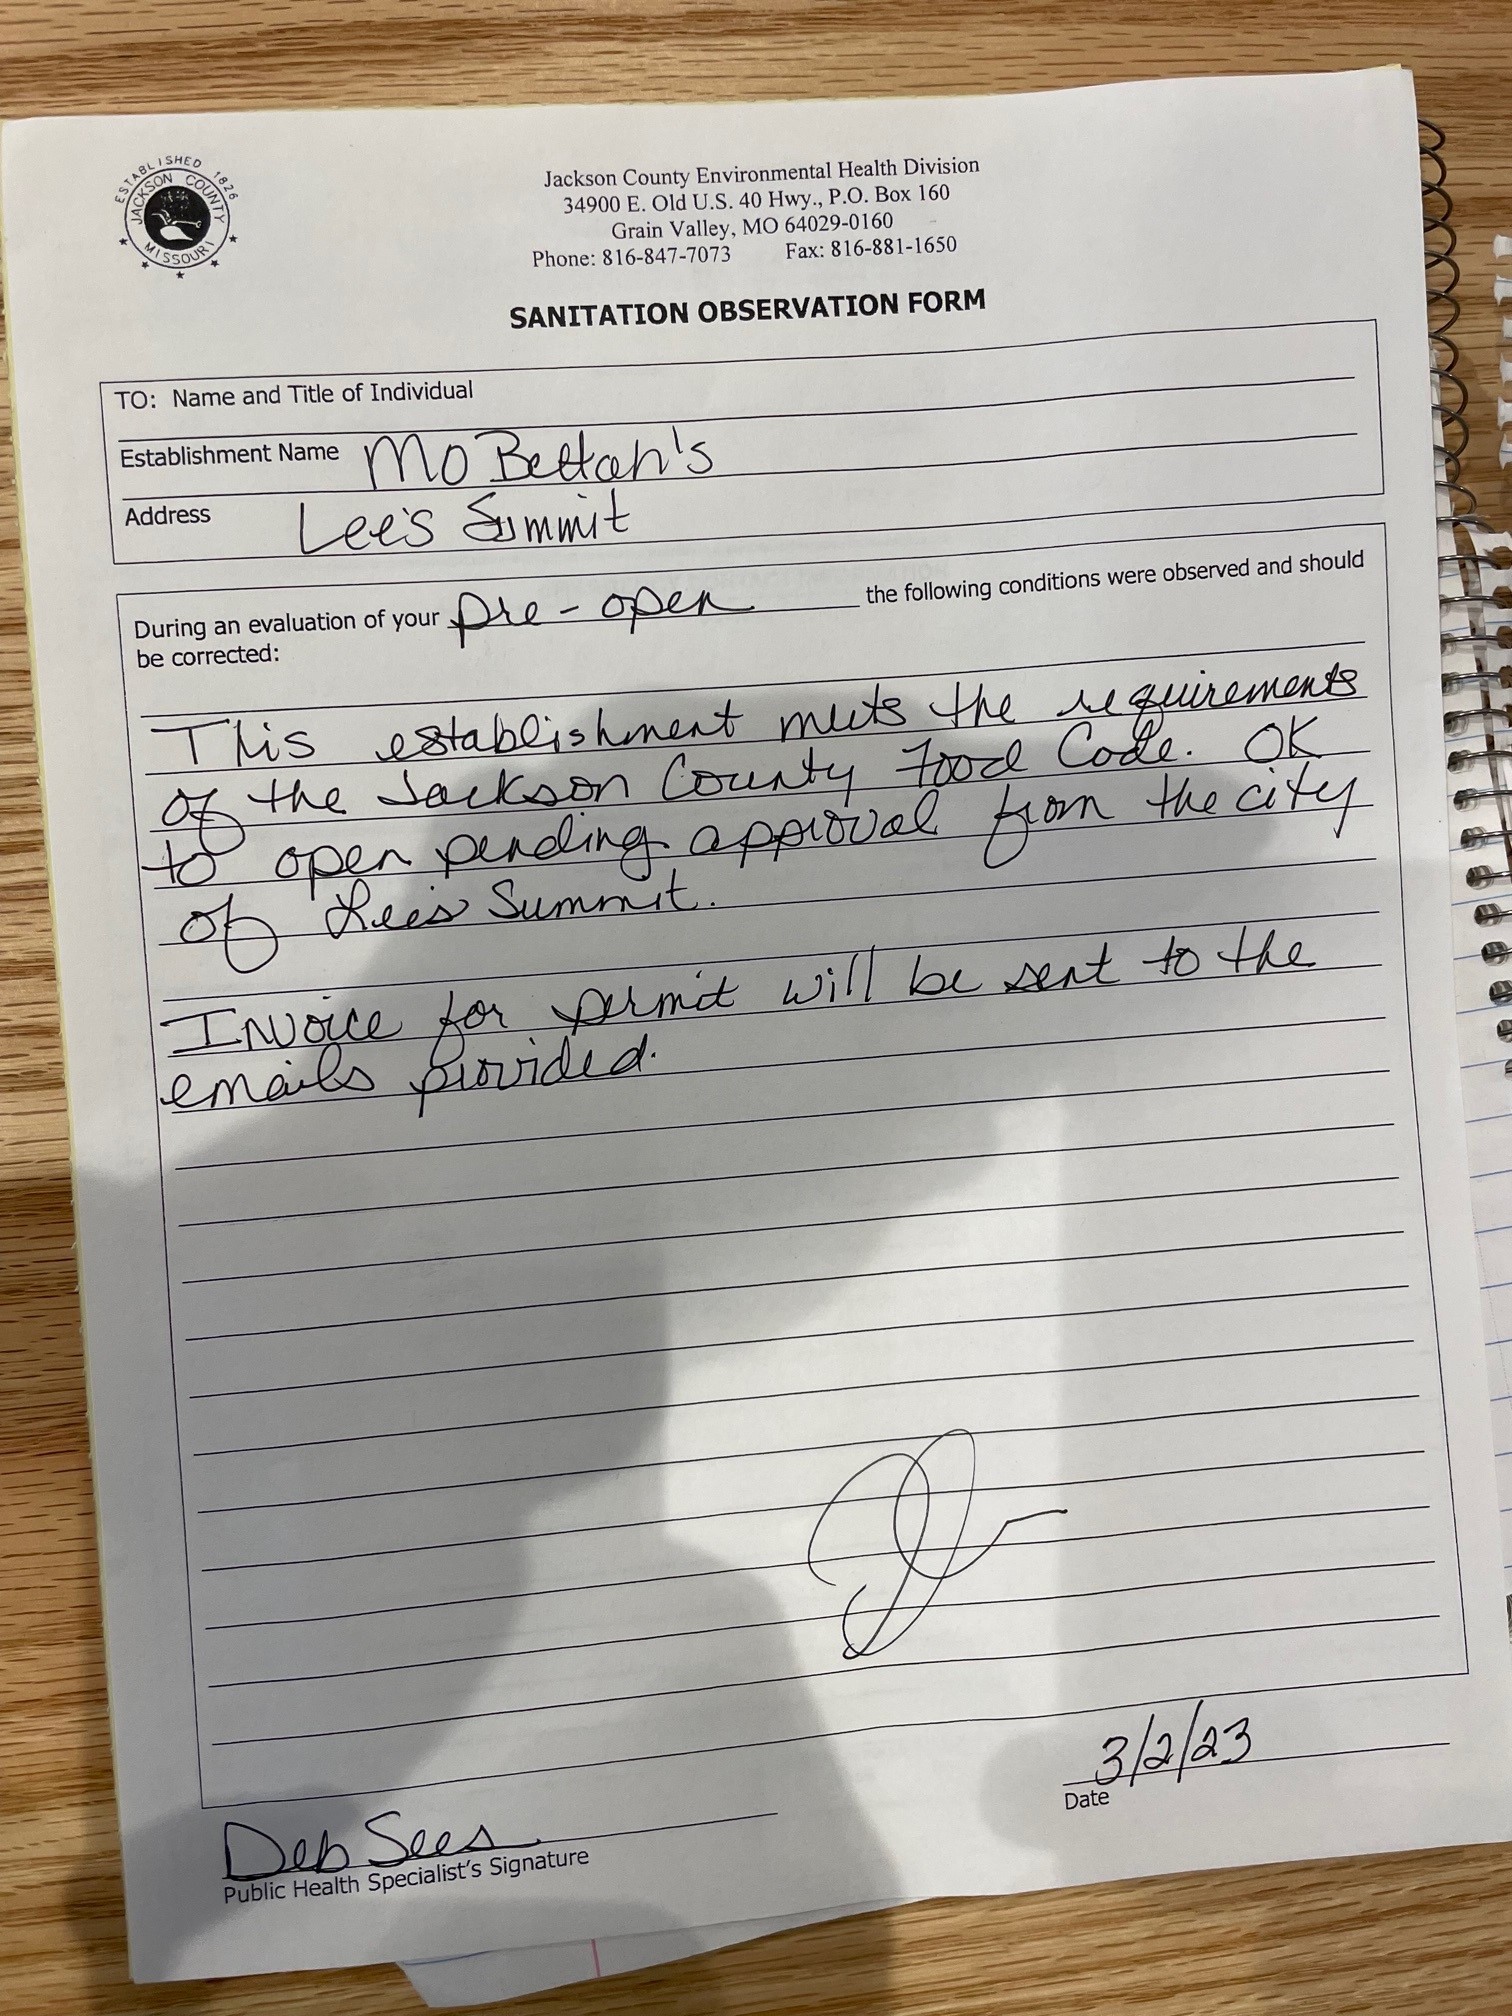 ESTABLISHED 1826
JACKSON COUNTY
MISSOURI
Jackson County Environmental Health Division
34900 E. Old U.S. 40 Hwy., P.O. Box 160
Grain Valley, MO 64029-0160
Phone: 816-847-7073 Fax: 816-881-1650
SANITATION OBSERVATION FORM
TO: Name and Title of Individual
Establishment Name Mo Bettah's
Address Lee's Summit
During an evaluation of your pre-open the following conditions were observed and should
be corrected:
This establishment meets the requirements
of the Jackson County Food Code. OK
to open pending approval from the city
of Lee's Summit.
Invoice for permit will be sent to the
emails provided.
3/2/23
Date
Deb Sees
Public Health Specialist's Signature